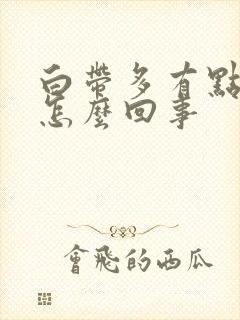 白帶多有點
怎麼回事
會飛的西瓜